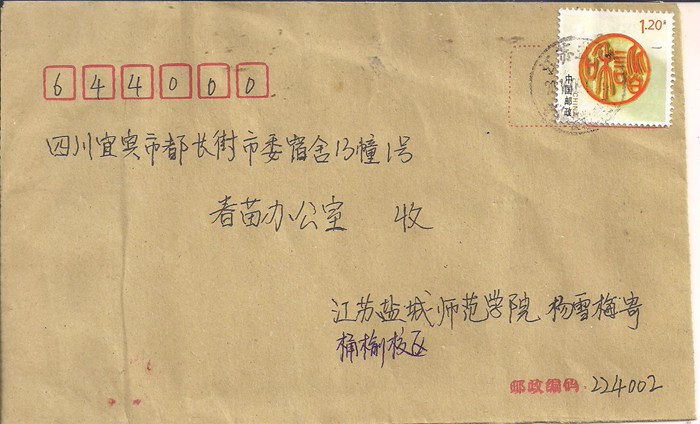 644000
1.20元
中国邮政
CHINA
四川宜宾市都长街市委宿舍13幢1号
春苗办公室 收
江苏盐城师范学院 杨雪梅寄
校区
邮政编码:224002